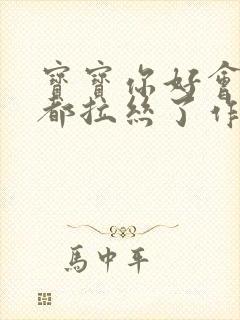 寶寶你好會
都拉絲了作
馬中年